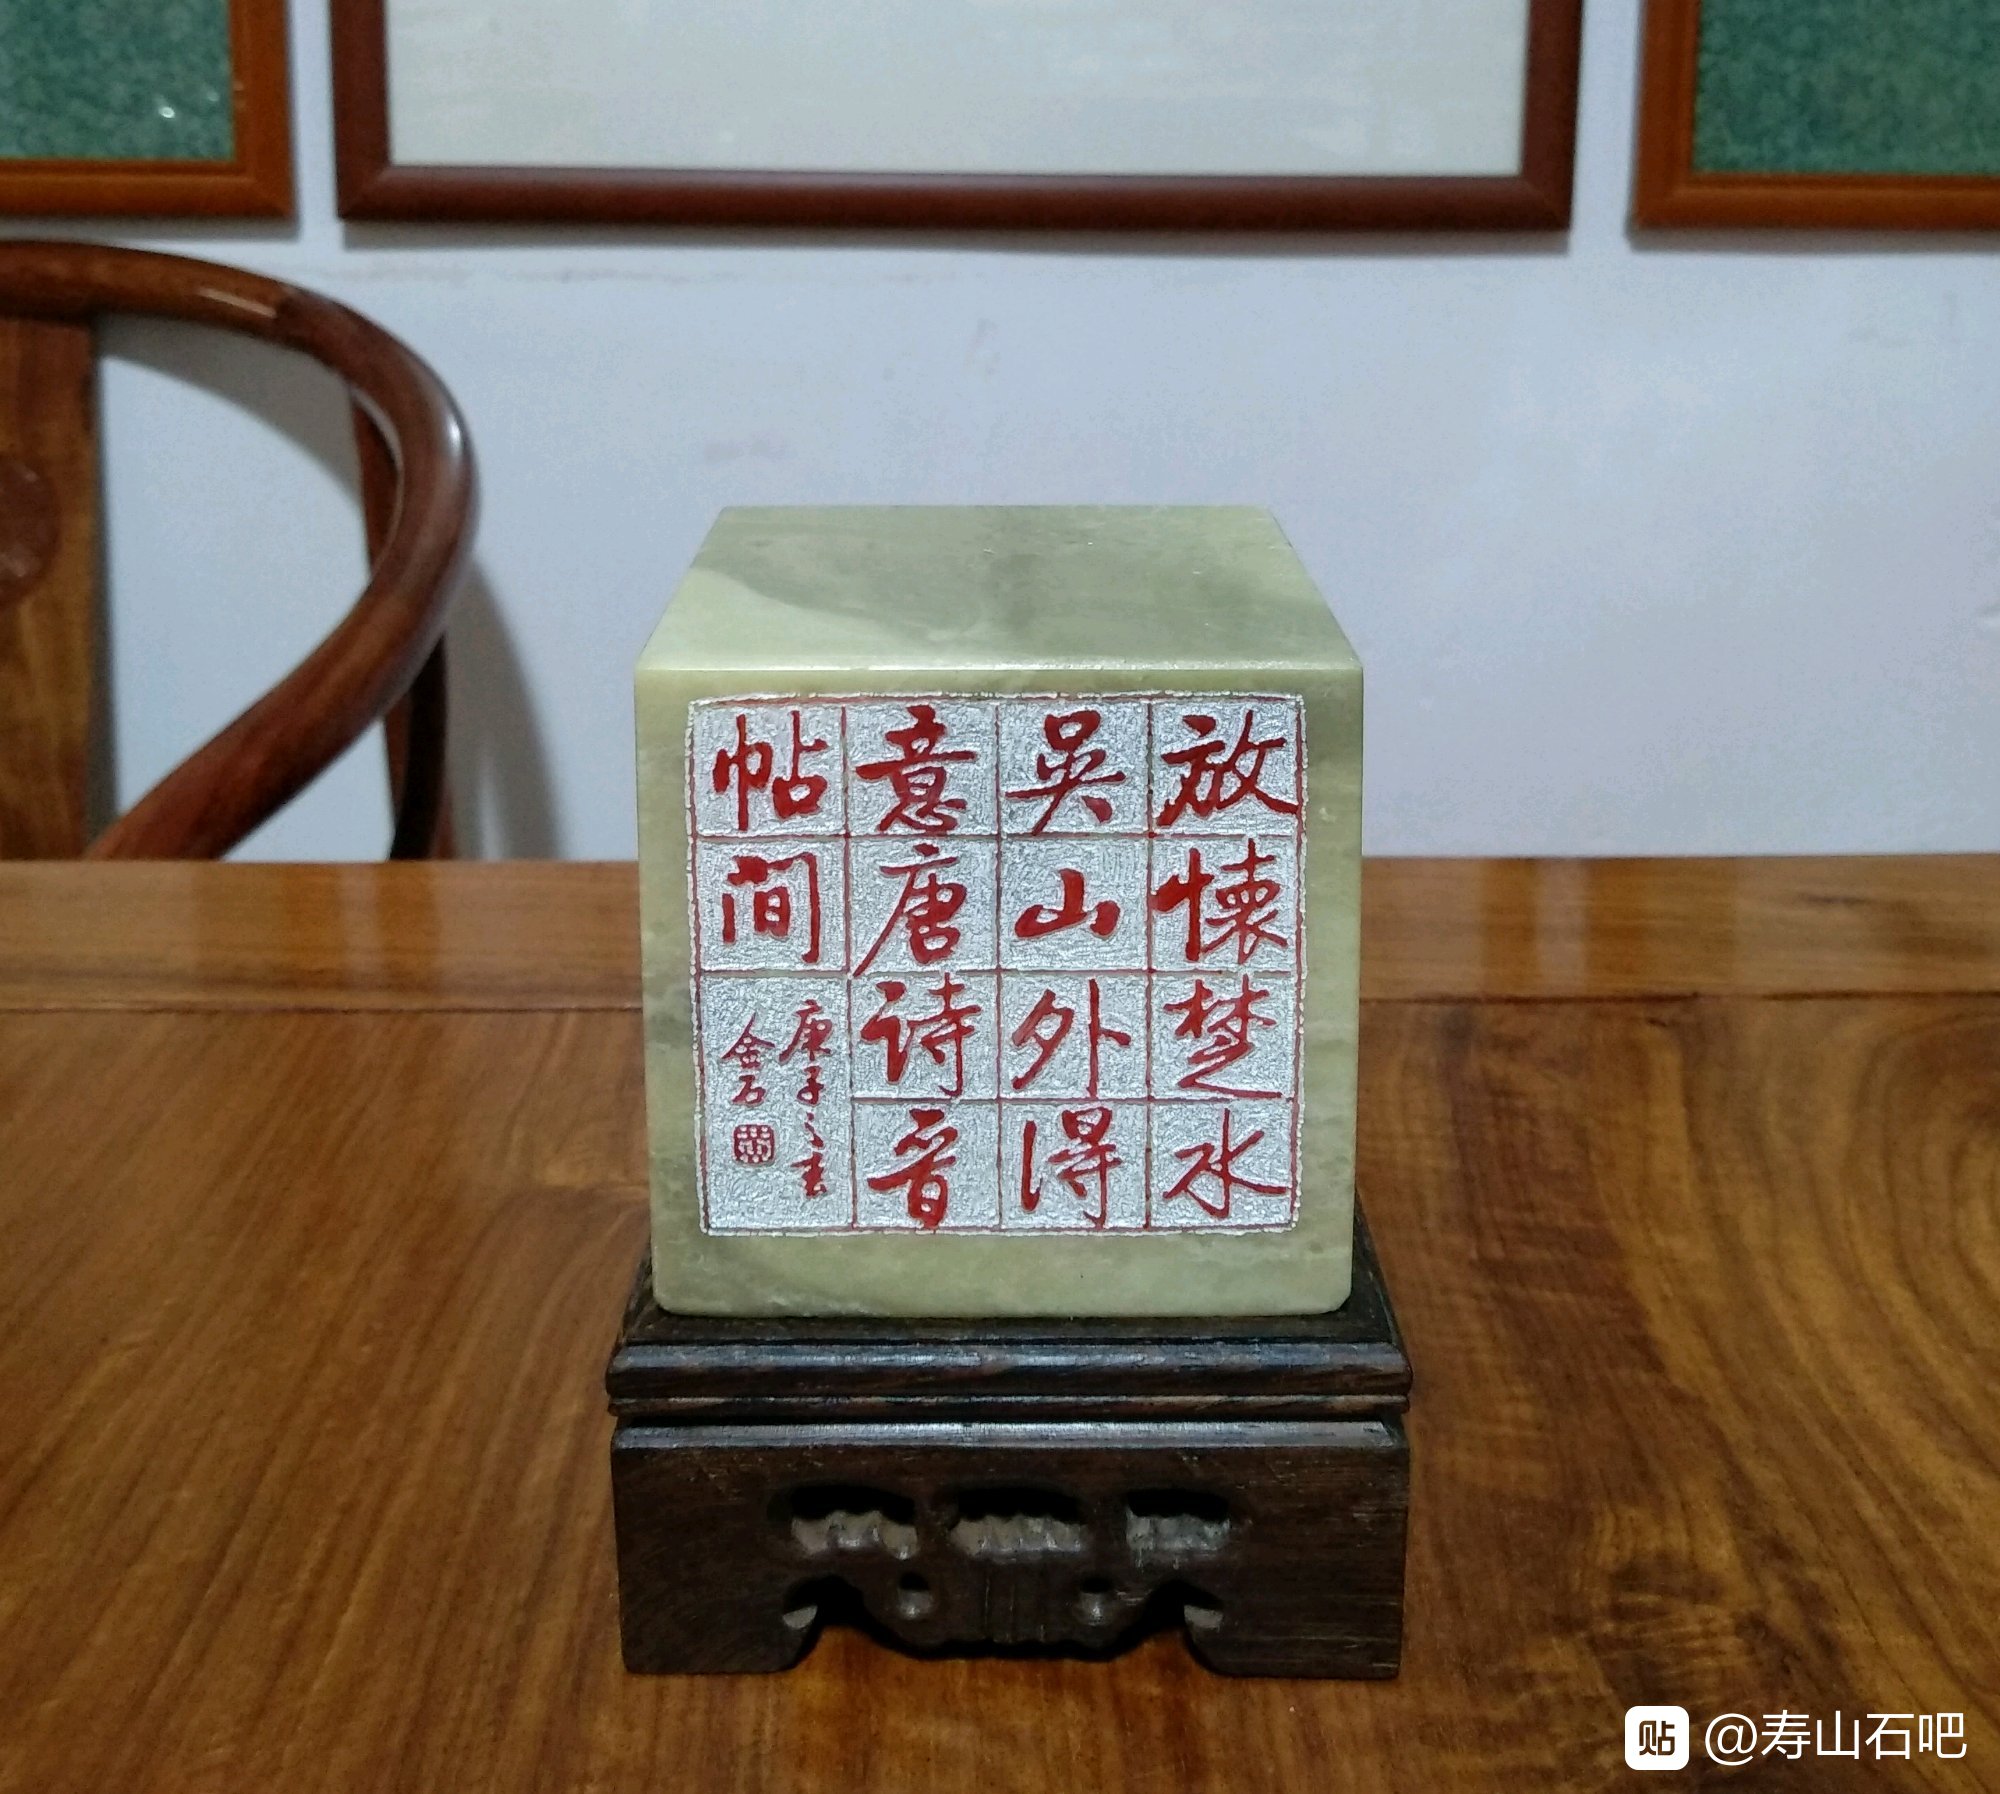 放懷楚水
吳山外得
意唐诗晋
帖间
庚子之春
金石
贴 @寿山石吧